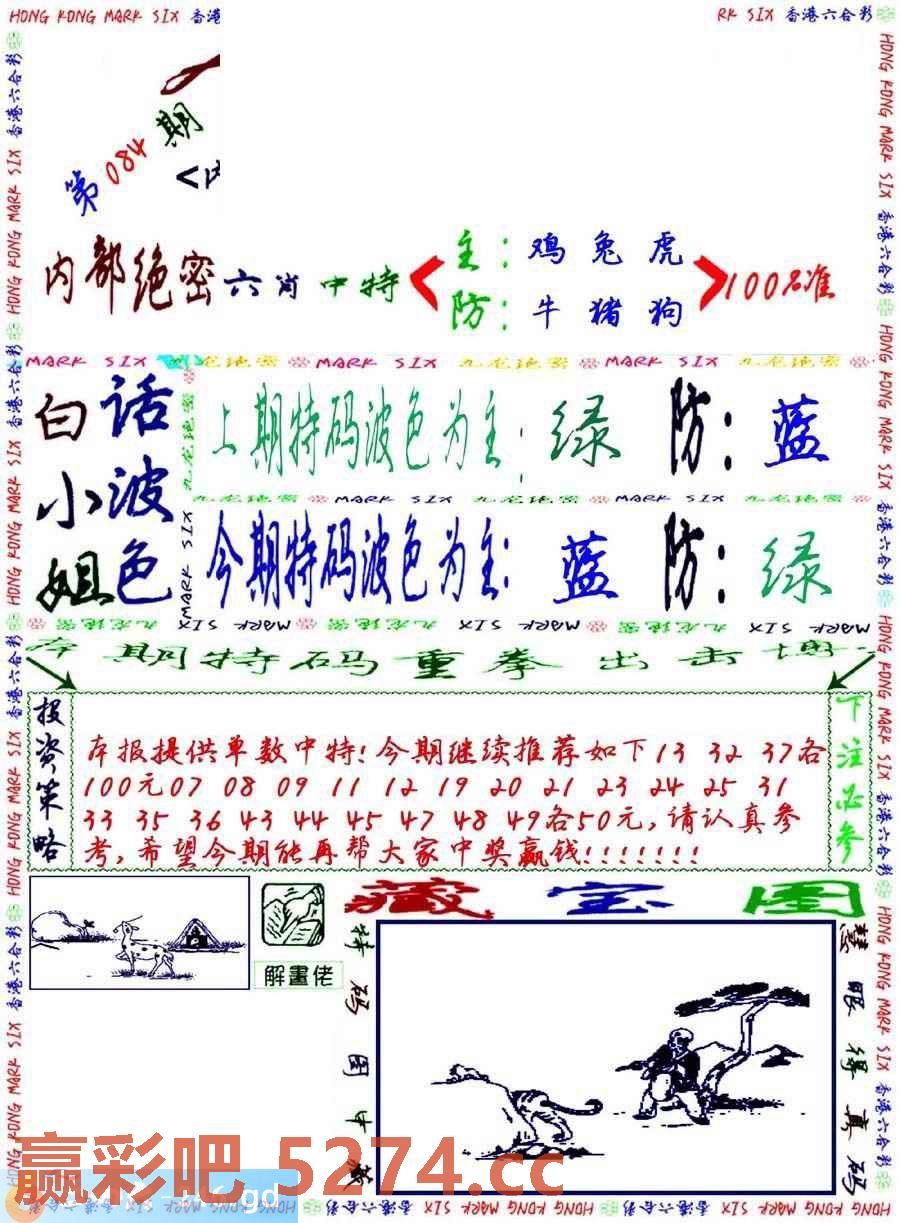 HONG KONG MARK SIX 香港
RK SIX 香港六合彩
第084期
内部绝密六肖中特
主：鸡兔虎
防：牛猪狗
100%准
MARK SIX 九龙绝密 MARK SIX 九龙绝密 MARK SIX 九龙绝密
白话
小波
姐色
上期特码波色为主：绿 防：蓝
九龙绝密 MARK SIX 九龙绝密 MARK SIX 九龙绝密
今期特码波色为主：蓝 防：绿
MARK SIX 九龙绝密 MARK SIX 九龙绝密 MARK SIX 九龙绝密
本期特码重拳出击
投资策略
下注必参
本报提供单数中特!今期继续推荐如下13 32 37各
100元07 08 09 11 12 19 20 21 23 24 25 31
33 35 36 43 44 45 47 48 49各50元,请认真参
考,希望今期能再帮大家中奖赢钱!!!!!!!
藏宝图
解畫佬
特码图中
慧眼得真码
赢彩吧 5274.cc
HONG KONG MARK SIX 香港六合彩